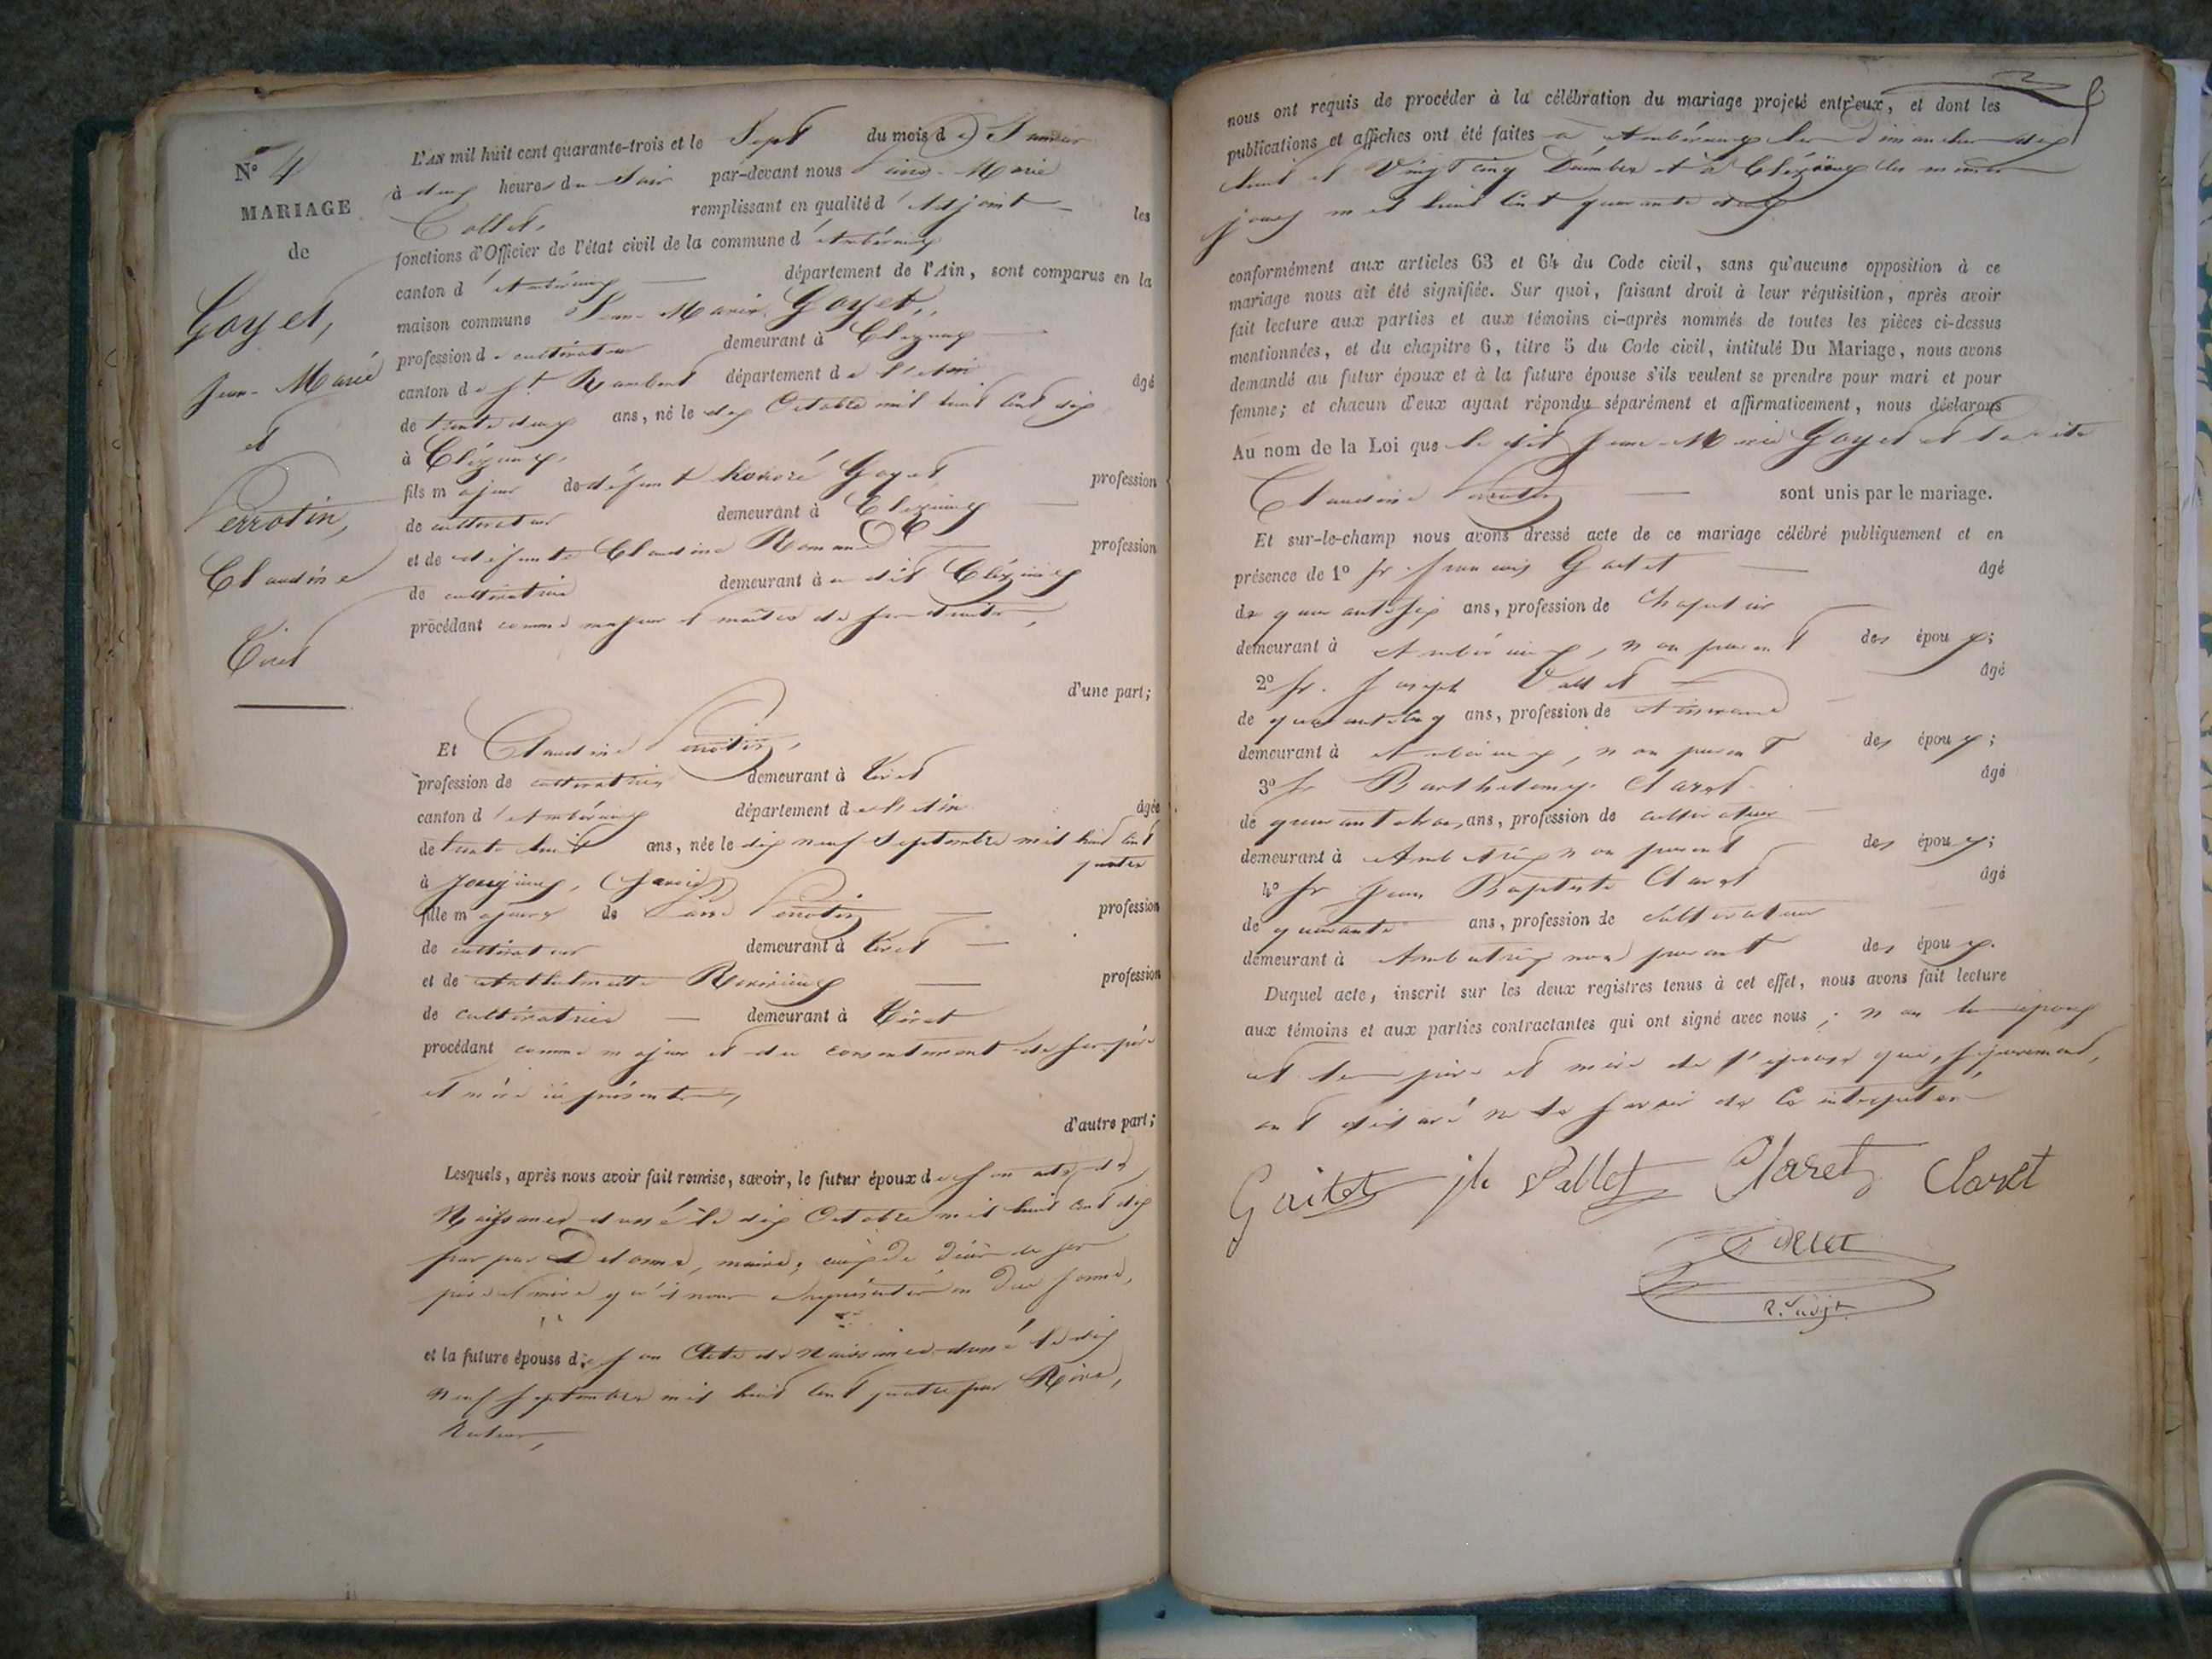 N° 4
MARIAGE
de
Goyet,
Jean-Marie
et
Perrotin,
Claudine
Tiret
L'AN mil huit cent quarante-trois et le Sept du mois de Janvier
à deux heures du Soir par-devant nous Marie
Collet, remplissant en qualité d'Adjoint les
fonctions d'Officier de l'état civil de la commune d'Ambérieux
canton d'Ambérieux département de l'Ain, sont comparus en la
maison commune Jean-Marie Goyet,
profession de cultivateur demeurant à Cleyzieux
canton de St Rambert département de l'Ain âgé
de trente deux ans, né le dix Octobre mil huit cent dix
à Cléyzieux,
fils majeur de défunt honoré Goyet profession
de cultivateur demeurant à Cleyzieux
et de défunte Claudine Romand profession
de cultivatrice demeurant à u dit Cléyzieux
procédant comme majeur et maître de ses droits,
d'une part;
Et Claudine Perrotin,
profession de cultivatrice demeurant à Tiret
canton d'Ambérieux département de l'Ain âgée
de trente huit ans, née le dix neuf Septembre mil huit cent
quatre
à Jongieux, (Savoie)
fille majeure de Perrotin profession
de cultivateur demeurant à Tiret
et de profession
de cultivatrice demeurant à Tiret
procédant comme majeure et du consentement de ses père
et mère ici présents,
d'autre part;
Lesquels, après nous avoir fait remise, savoir, le futur époux de son acte de
Naissance dressé le dix Octobre mil huit cent dix
par Delorme, maire, de ses
père et mère qu'il nous a représentés en due forme,
et la future épouse de son Acte de Naissance dressé le dix
neuf Septembre mil huit cent quatre par
Recteur,
nous ont requis de procéder à la célébration du mariage projeté entr'eux, et dont les
publications et affiches ont été faites à Ambérieux les Dimanches dix
huit et Vingt cinq Décembre et à Cléyzieux les mêmes
jours mil huit Cent quarante deux
conformément aux articles 63 et 64 du Code civil, sans qu'aucune opposition à ce
mariage nous ait été signifiée. Sur quoi, faisant droit à leur réquisition, après avoir
fait lecture aux parties et aux témoins ci-après nommés de toutes les pièces ci-dessus
mentionnées, et du chapitre 6, titre 5 du Code civil, intitulé Du Mariage, nous avons
demandé au futur époux et à la future épouse s'ils veulent se prendre pour mari et pour
femme; et chacun d'eux ayant répondu séparément et affirmativement, nous déclarons
Au nom de la Loi que le dit Jean-Marie Goyet et la dite
Claudine Perrotin sont unis par le mariage.
Et sur-le-champ nous avons dressé acte de ce mariage célébré publiquement et en
présence de 1° Sr. François âgé
de quarante six ans, profession de Chapelier
demeurant à Ambérieux, non parent des époux;
2° Sr. Joseph Vallet âgé
de quarante cinq ans, profession de Tisserand
demeurant à Ambérieux, non parent des époux;
3° Sr Barthelemy Claret âgé
de quarante trois ans, profession de cultivateur
demeurant à Ambutrix non parent des époux;
4° Sr Jean Baptiste Claret âgé
de quarante ans, profession de Cultivateur
demeurant à Ambutrix non parent des époux.
Duquel acte, inscrit sur les deux registres tenus à cet effet, nous avons fait lecture
aux témoins et aux parties contractantes qui ont signé avec nous; non les époux
et les père et mère de l'épouse qui, séparément,
ont déclaré ne le savoir de ce interpellés
Claret Claret